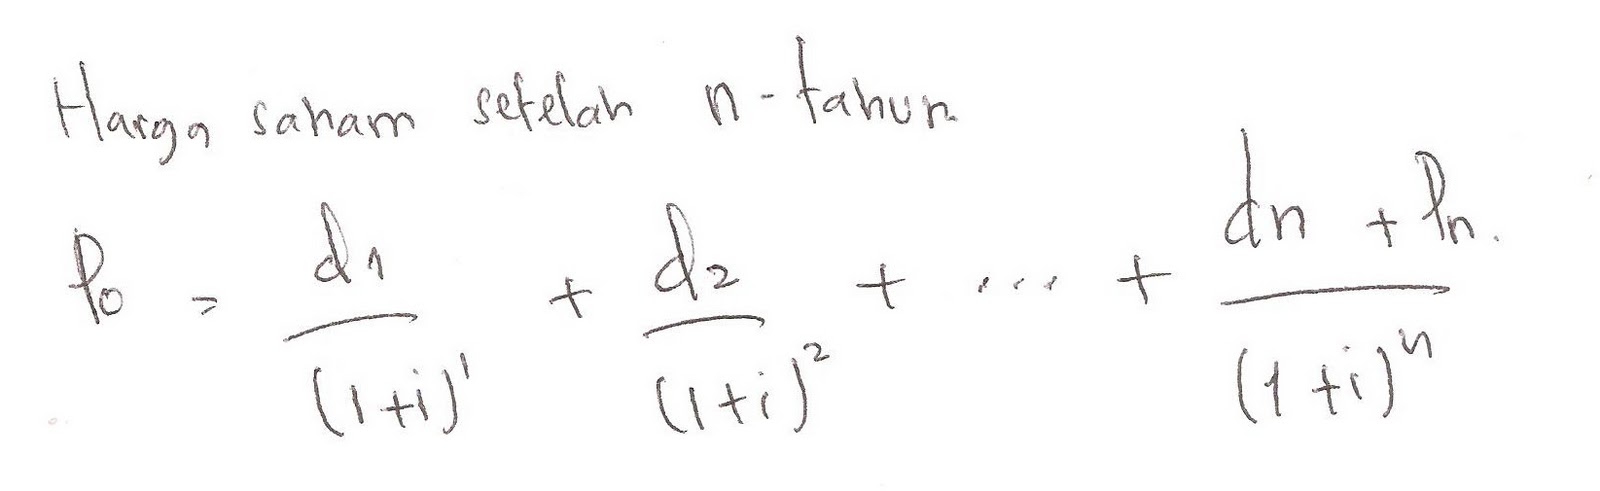 Harga saham setelah n-tahun
P₀ = d₁/(1+i)¹ + d₂/(1+i)² + ... + (dn + Pn.)/(1+i)ⁿ